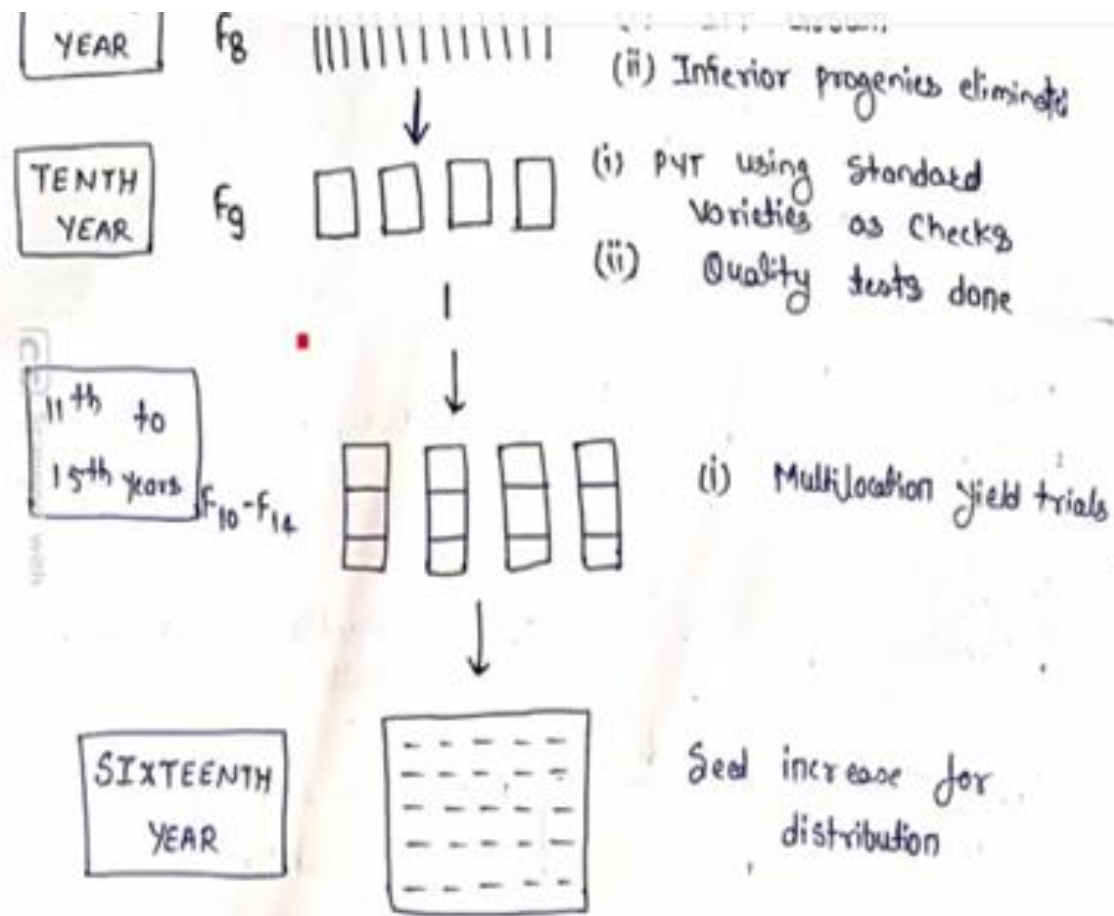 YEAR F8
(ii) Inferior progenies eliminated
TENTH YEAR F9
(i) PYT using Standard
Varieties as Checks
(ii) Quality tests done
11th to
15th years F10-F14
(i) Multilocation yield trials
with
SIXTEENTH
YEAR
Seed increase for
distribution